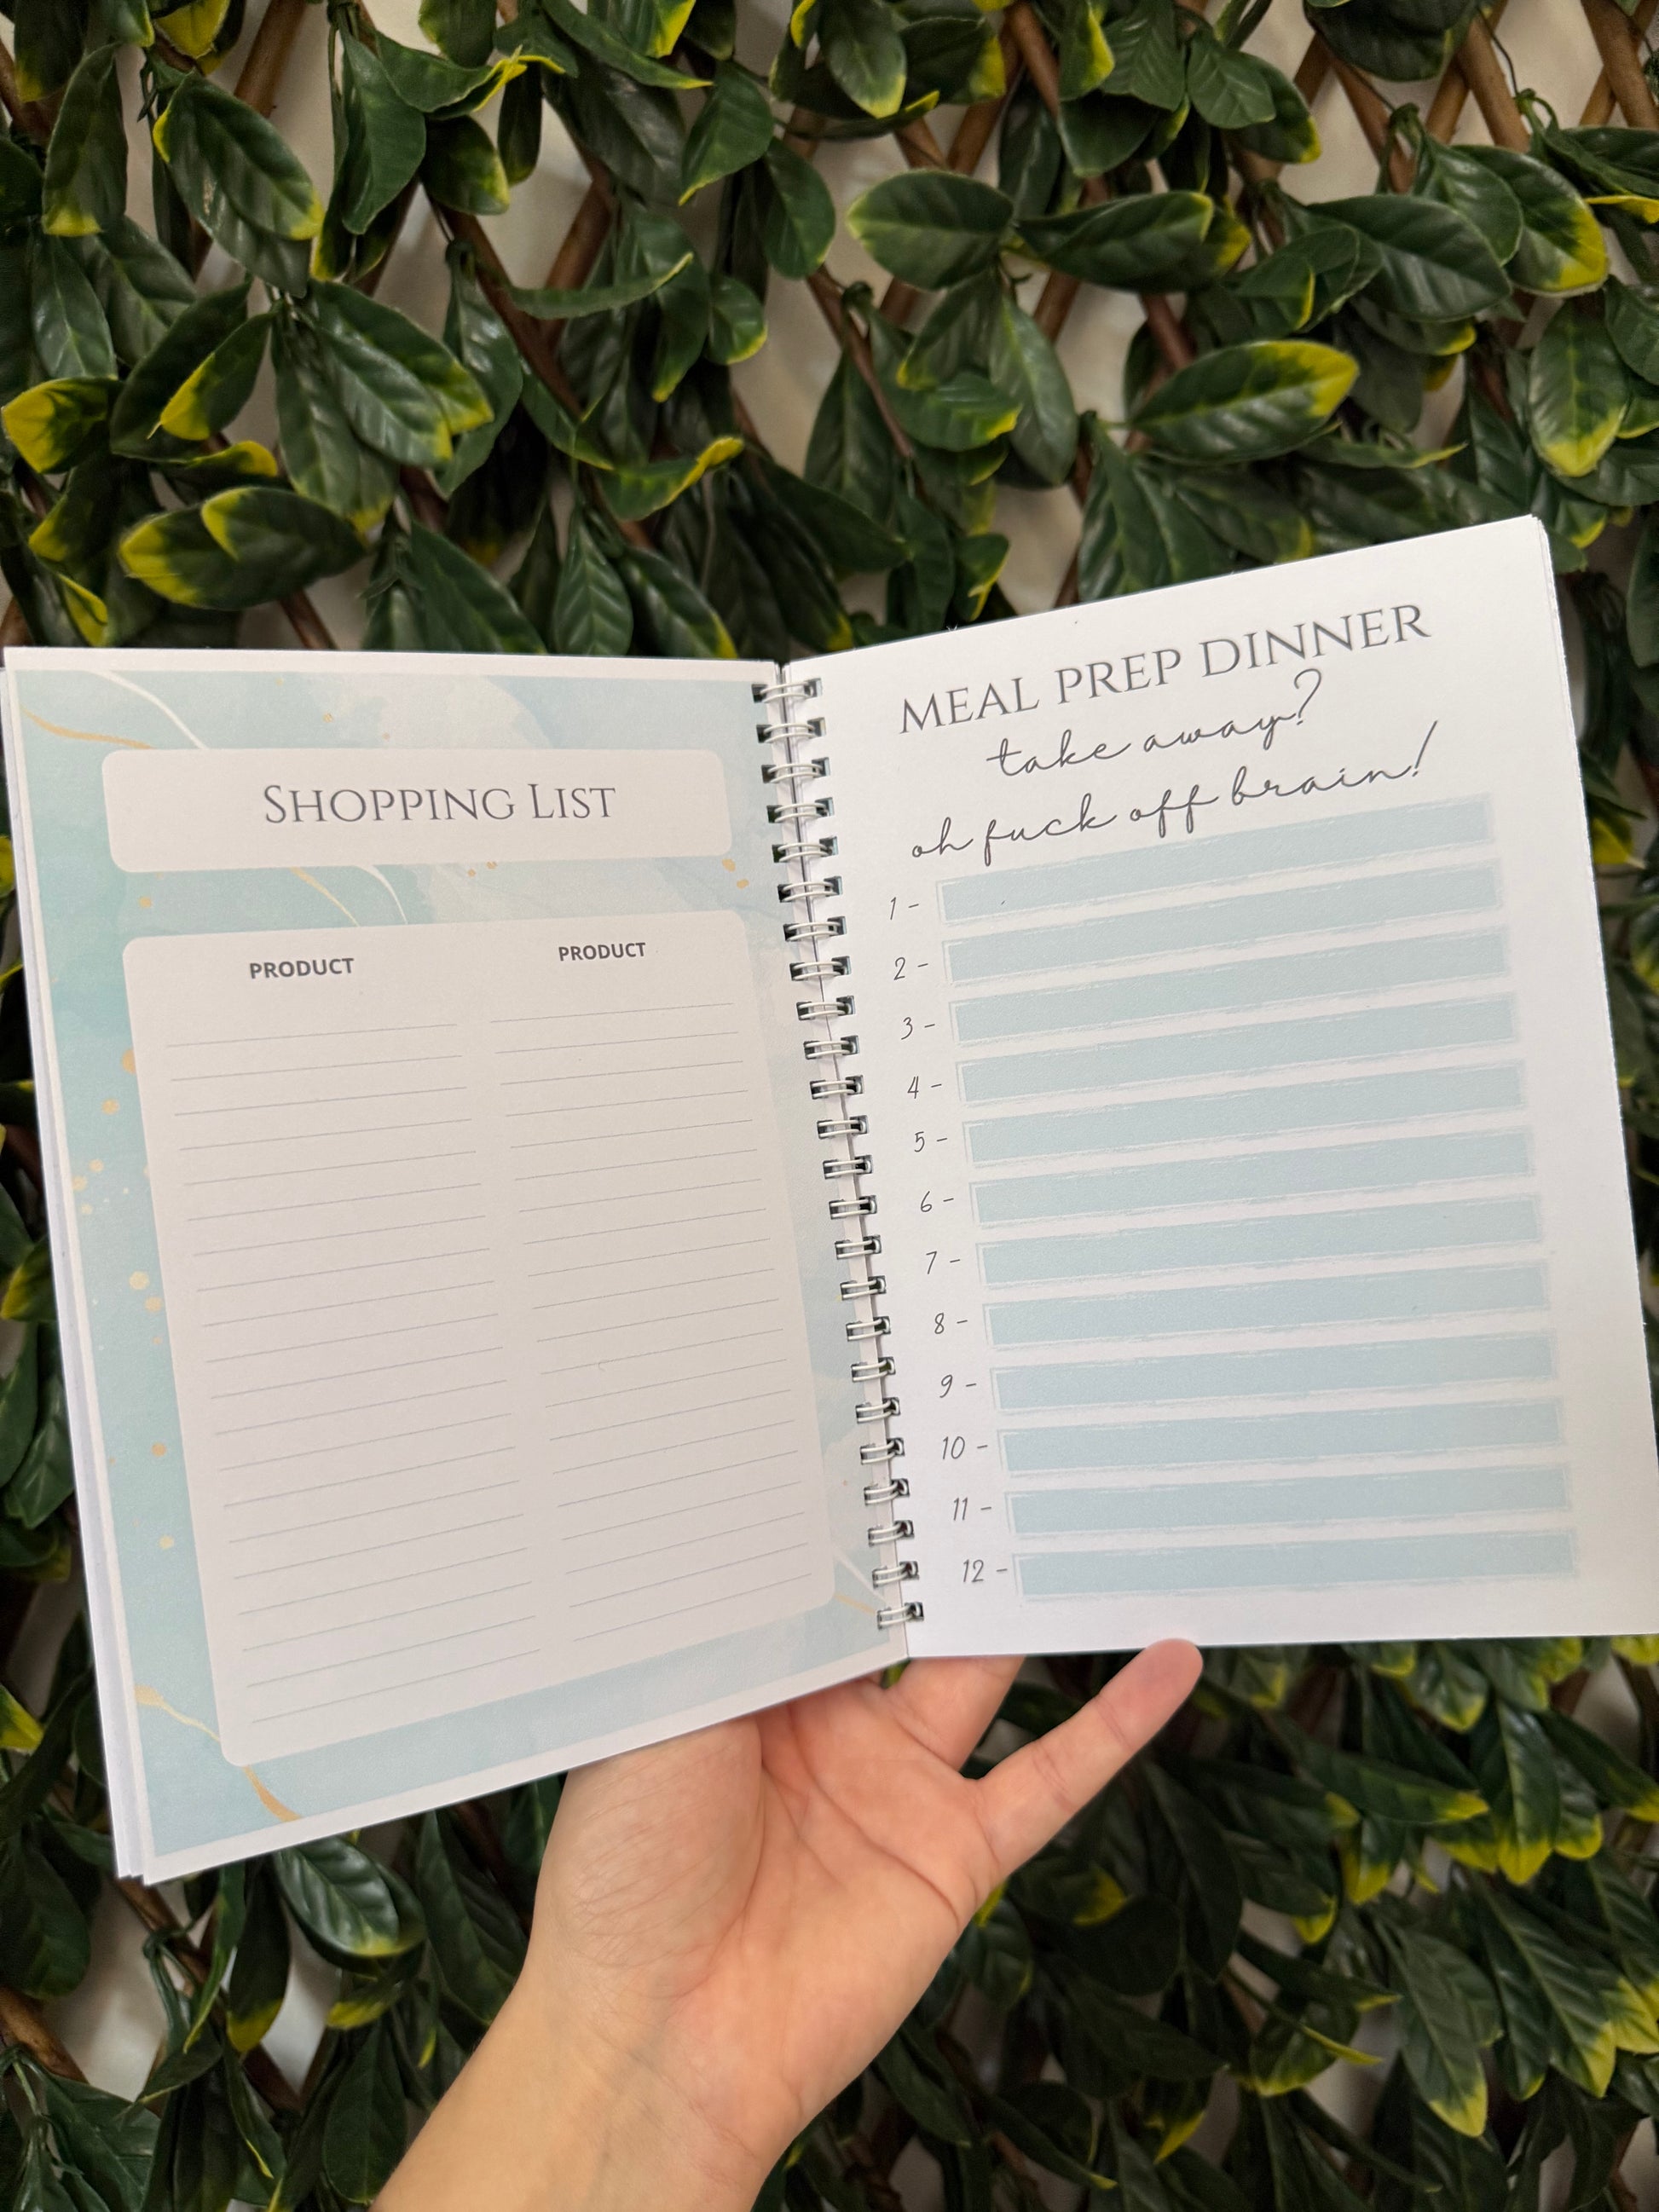 SHOPPING LIST
PRODUCT PRODUCT
MEAL PREP DINNER
take away?
oh fuck off brain!
1 -
2 -
3 -
4 -
5 -
6 -
7 -
8 -
9 -
10 -
11 -
12 -